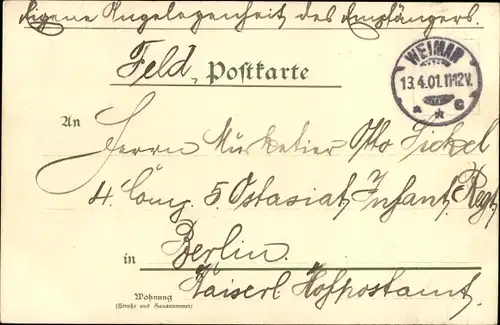 Eigene Angelegenheit des Empfängers.
Feld Postkarte
WEIMAR
13.4.01.11-12V.
* * c
An
Herrn Musketier Otto Sickel
4. Comp. 5. Ostasiat. Infant. Regt.
in Berlin.
Kaiserl. Hofpostamt.
Wohnung
(Straße und Hausnummer)